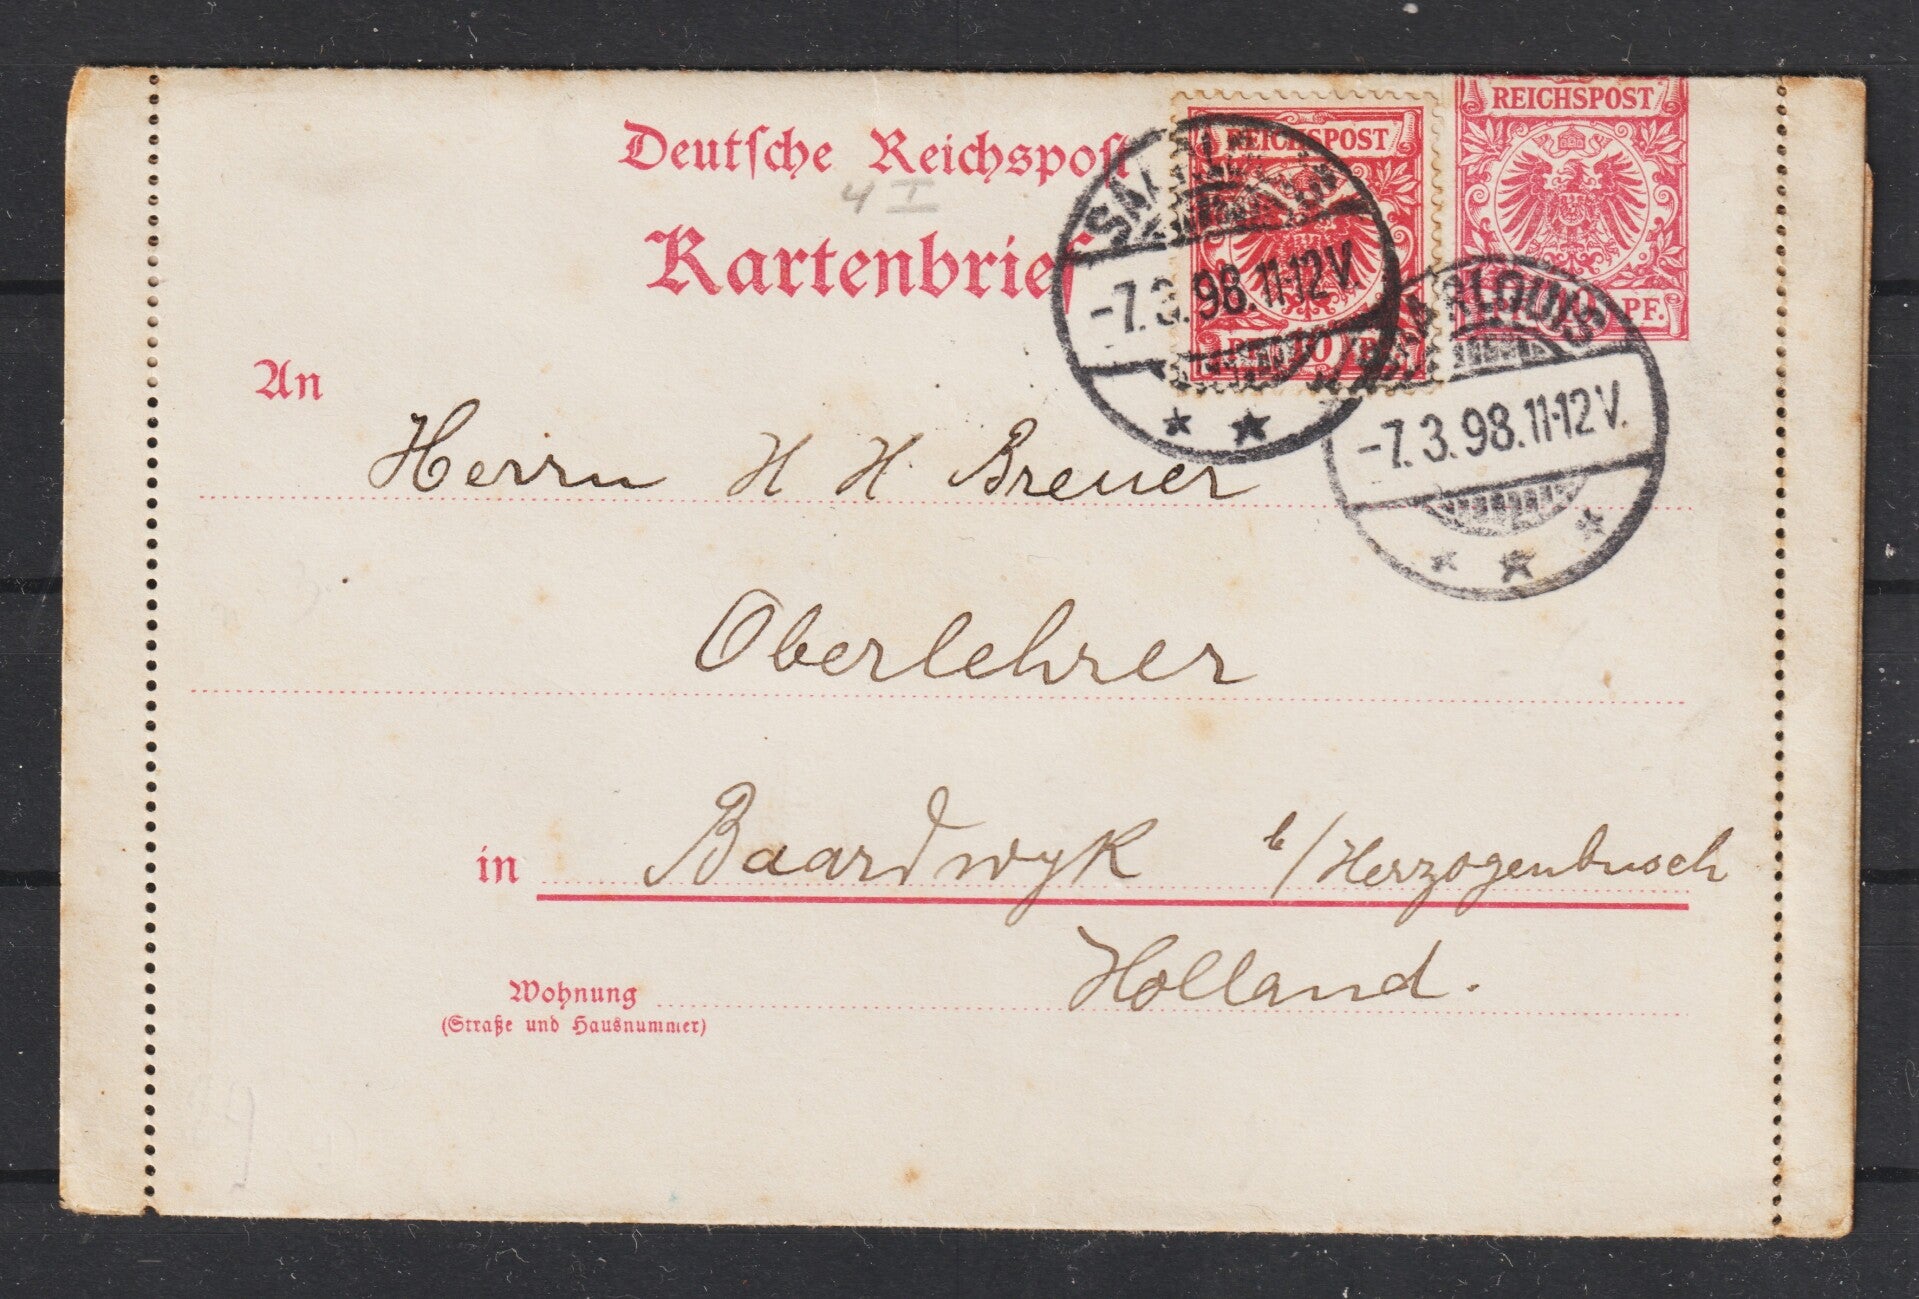 Deutsche Reichspost
4 I
Kartenbrief
REICHSPOST
REICHSPOST
PF.
SAARLOUIS
-7.3.98.11-12V.
SAARLOUIS
-7.3.98.11-12V.
An
Herrn H H. Breuer
Oberlehrer
in Baardwyk b/Herzogenbusch
Holland.
Wohnung
(Straße und Hausnummer)